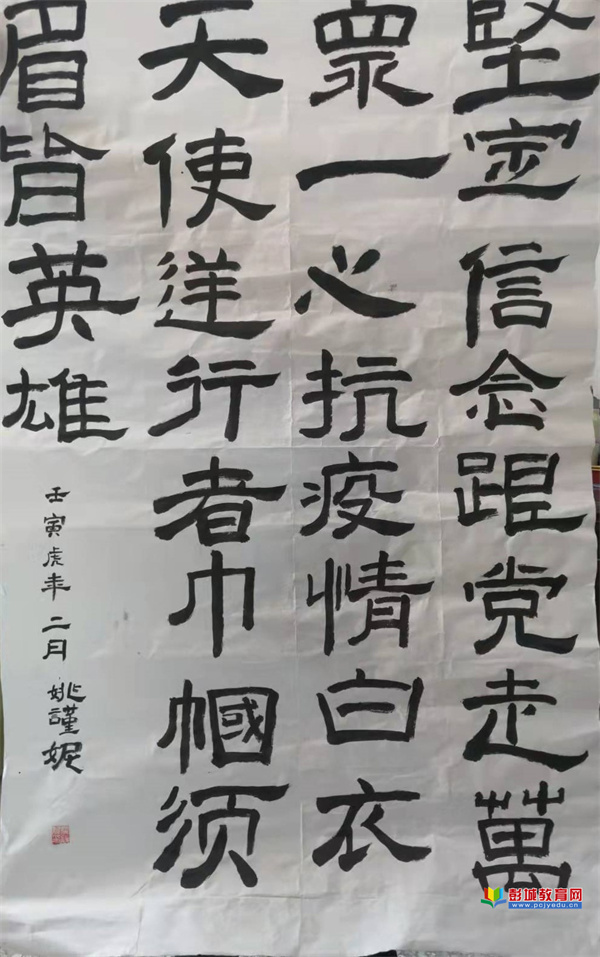 堅定信念跟党走萬
眾一心抗疫情白衣
天使逆行者巾帼须
眉皆英雄
壬寅虎年二月姚謹妮
彭城教育网
www.pcjyedu.cn